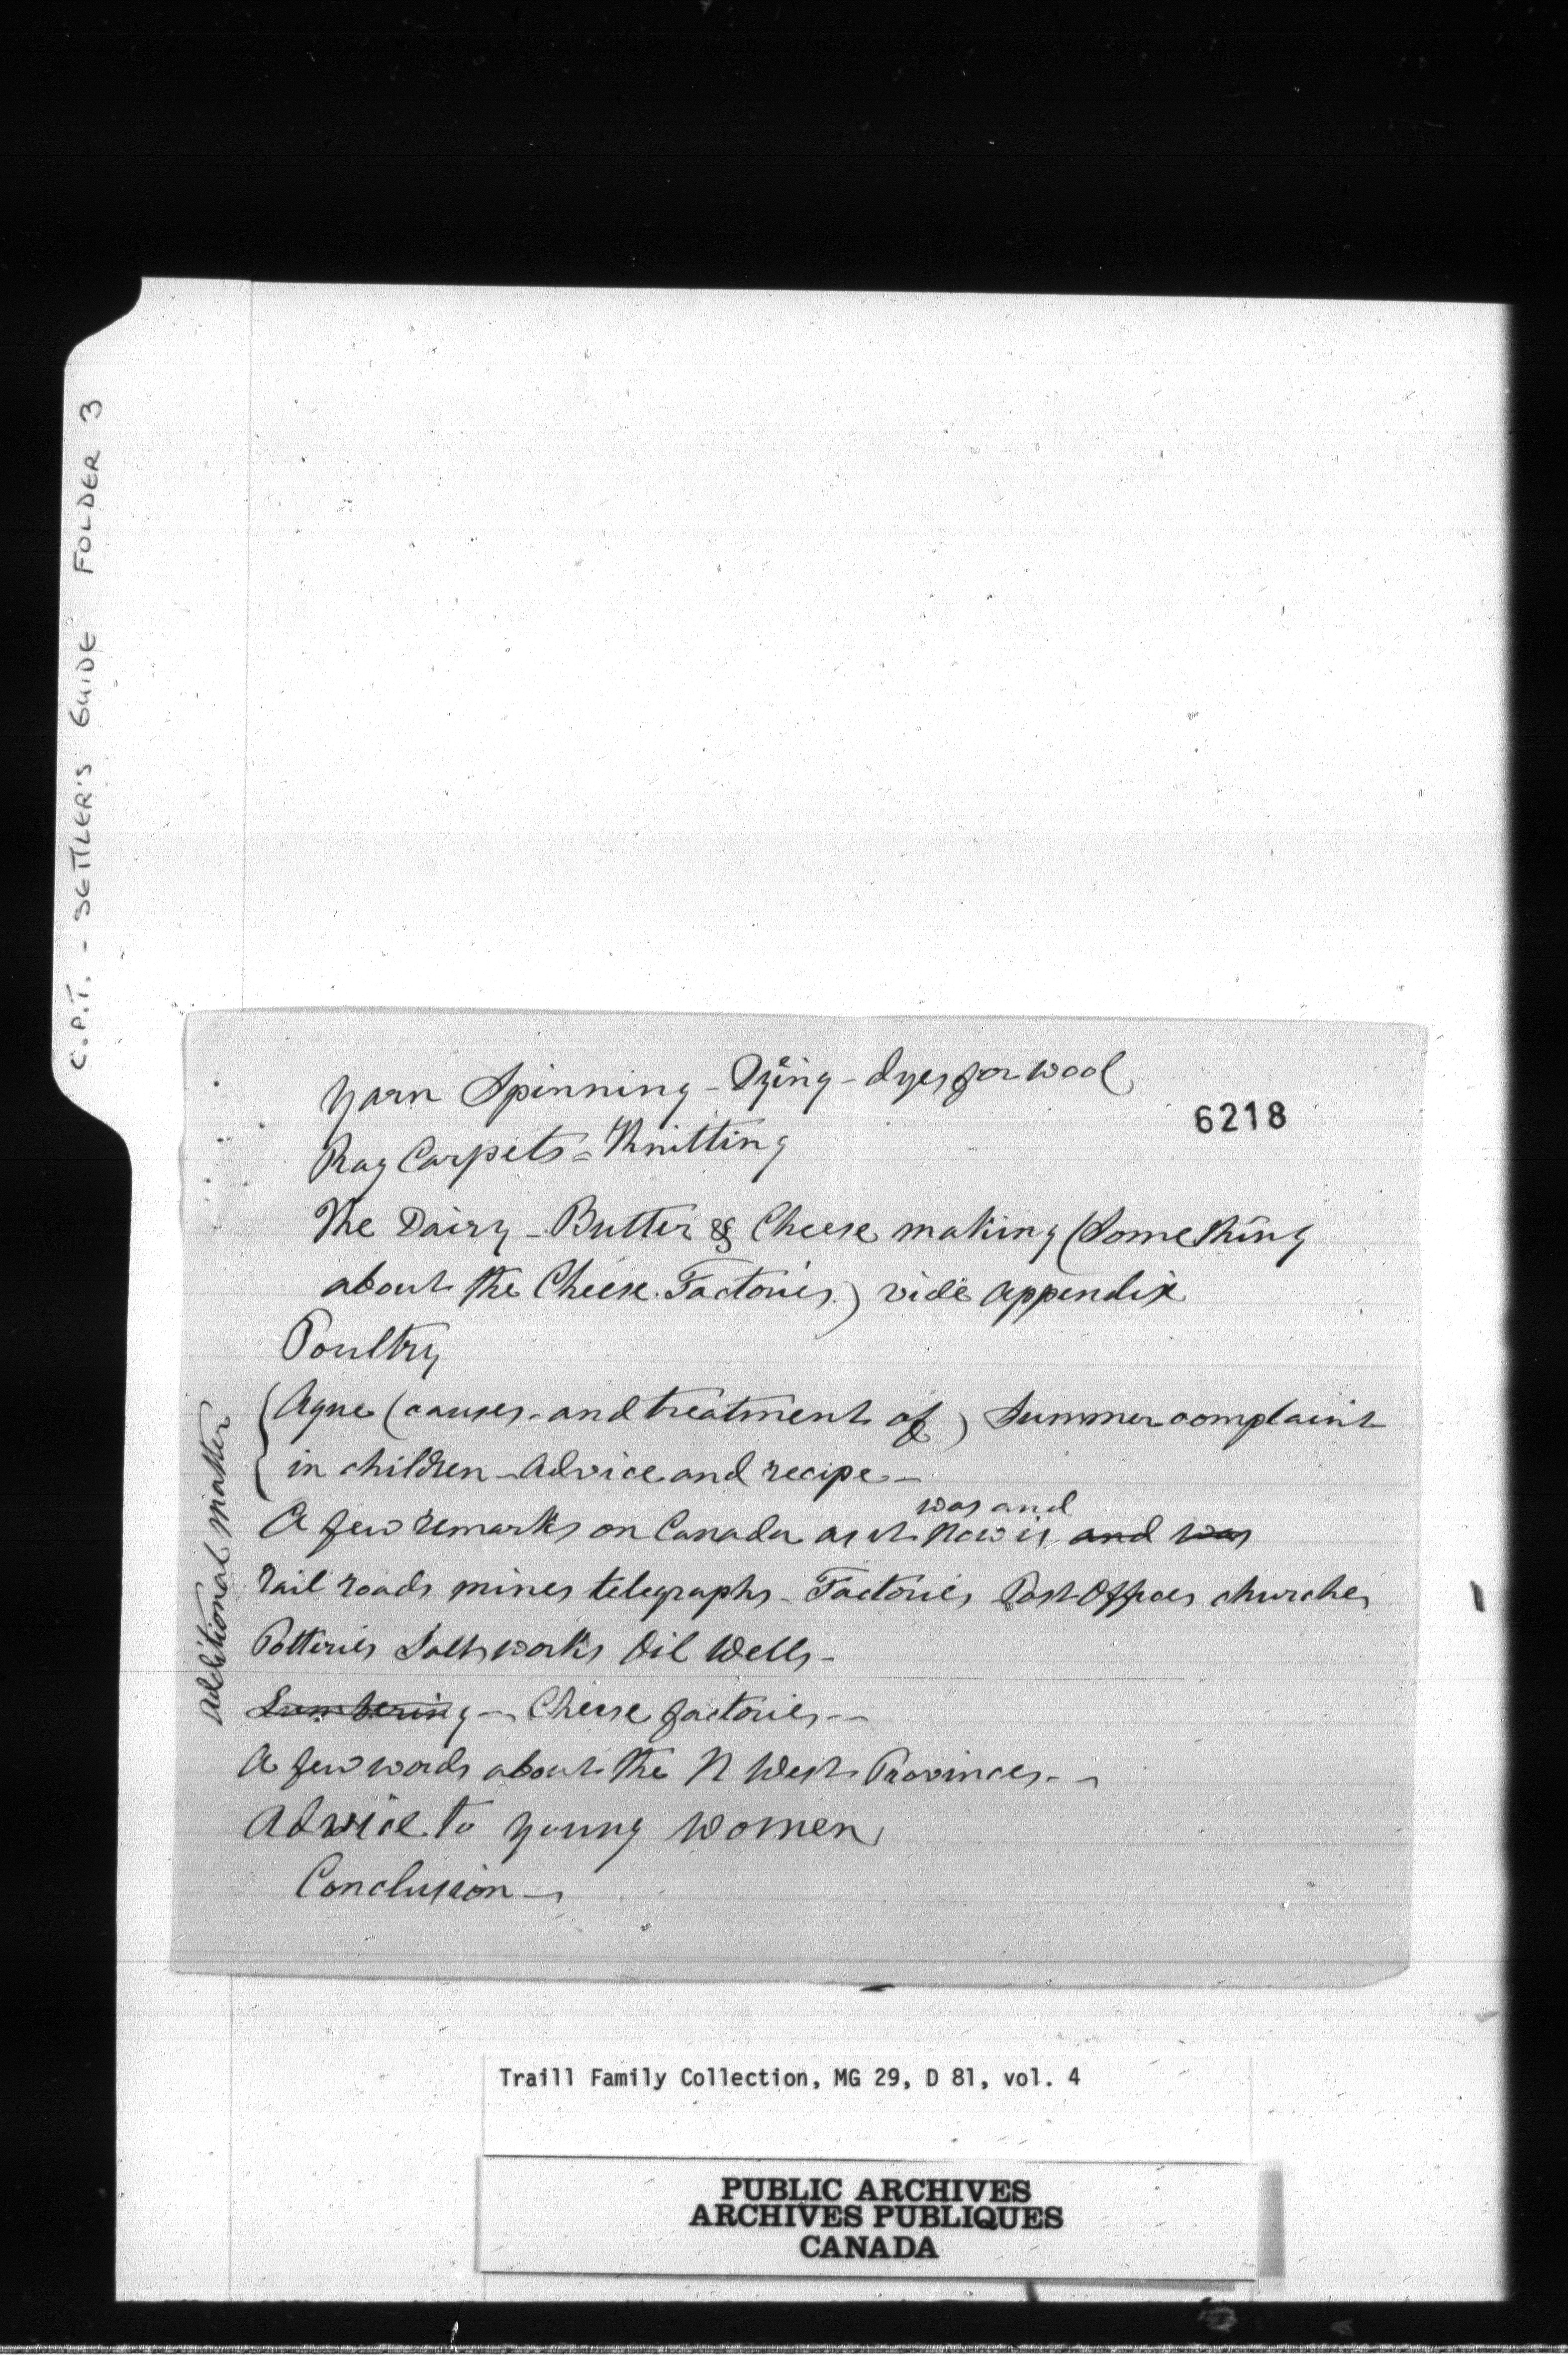 C.P.T. - SETTLER'S GUIDE FOLDER 3
Yarn Spinning - Dyëing - dyes for wool
6218
Rag Carpets = Knitting
The Dairy - Butter & Cheese making (Something
about the Cheese Factories.) vide appendix
Poultry
Additional matter
Ague (causes - and treatment of) Summer complaint
in children - Advice and recipe -
was and
A few remarks on Canada as it now is and was
rail roads mines telegraphs - Factories Post Offices churches
Potteries Salt works Oil Wells -
Lumbering - Cheese factories --
A few words about the N West Provinces - -
Advice to young women
Conclusion -
Traill Family Collection, MG 29, D 81, vol. 4
PUBLIC ARCHIVES
ARCHIVES PUBLIQUES
CANADA